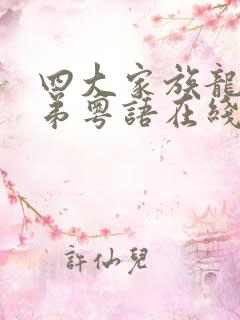 四大家族龍
弟粵語在綫
許仙兒